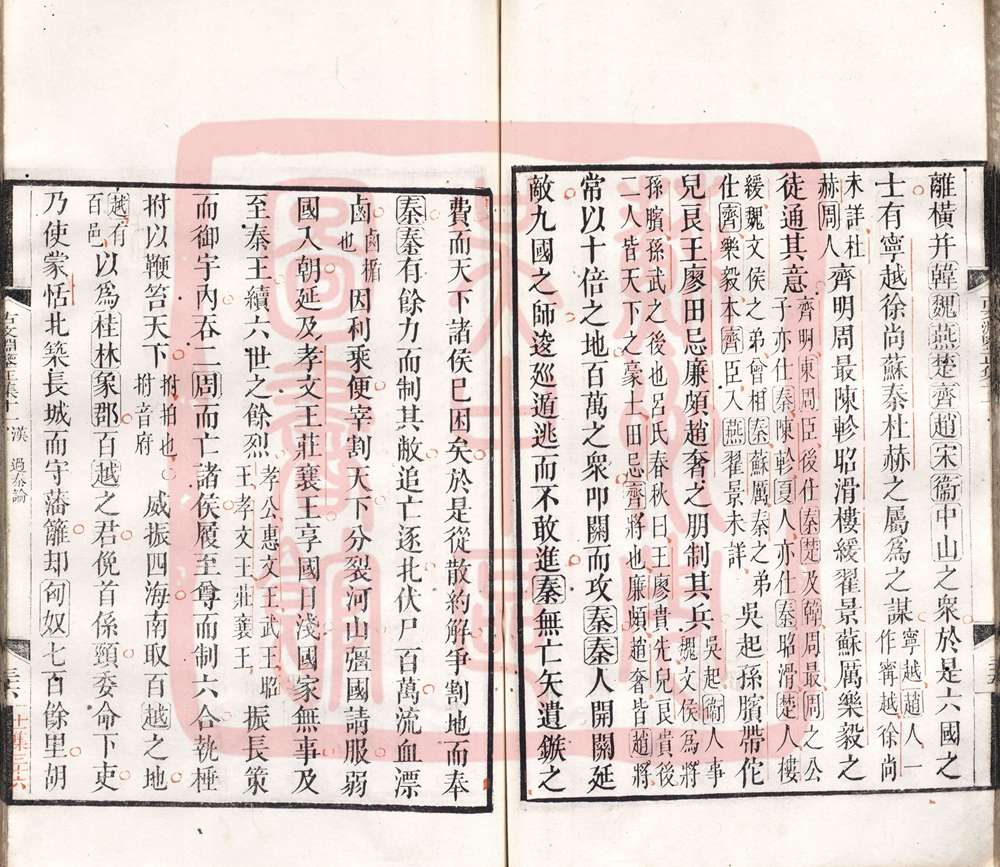 離橫并韓魏燕楚齊趙宋衞中山之衆於是六國之
士有寧越徐尚蘇秦杜赫之屬爲之謀寧越趙人一作甯越徐尚
未詳杜赫周人齊明周最陳軫昭滑樓緩翟景蘇厲樂毅之
徒通其意齊明東周臣後仕秦楚及韓周最周之公子亦仕秦陳軫夏人亦仕秦昭滑楚人樓
緩魏文侯之弟曾相秦蘇厲秦之弟仕齊樂毅本齊臣入燕翟景未詳吳起孫臏帶佗
兒良王廖田忌廉頗趙奢之朋制其兵吳起衞人事魏文侯爲將
孫臏孫武之後也呂氏春秋曰王廖貴先兒良貴後二人皆天下之豪士田忌齊將也廉頗趙奢皆趙將
常以十倍之地百萬之衆叩關而攻秦秦人開關延
敵九國之師逡廵遁逃而不敢進秦無亡矢遺鏃之
費而天下諸侯已困矣於是從散約解爭割地而奉
秦秦有餘力而制其敝追亡逐北伏尸百萬流血漂
鹵鹵楯也因利乘便宰割天下分裂河山彊國請服弱
國入朝延及孝文王莊襄王享國日淺國家無事及
至秦王續六世之餘烈孝公惠文王武王昭王孝文王莊襄王振長策
而御宇內吞二周而亡諸侯履至尊而制六合執棰
拊以鞭笞天下拊拍也拊音府威振四海南取百越之地
越有百邑以爲桂林象郡百越之君俛首係頸委命下吏
乃使蒙恬北築長城而守藩籬却匈奴七百餘里胡
漢 過秦論